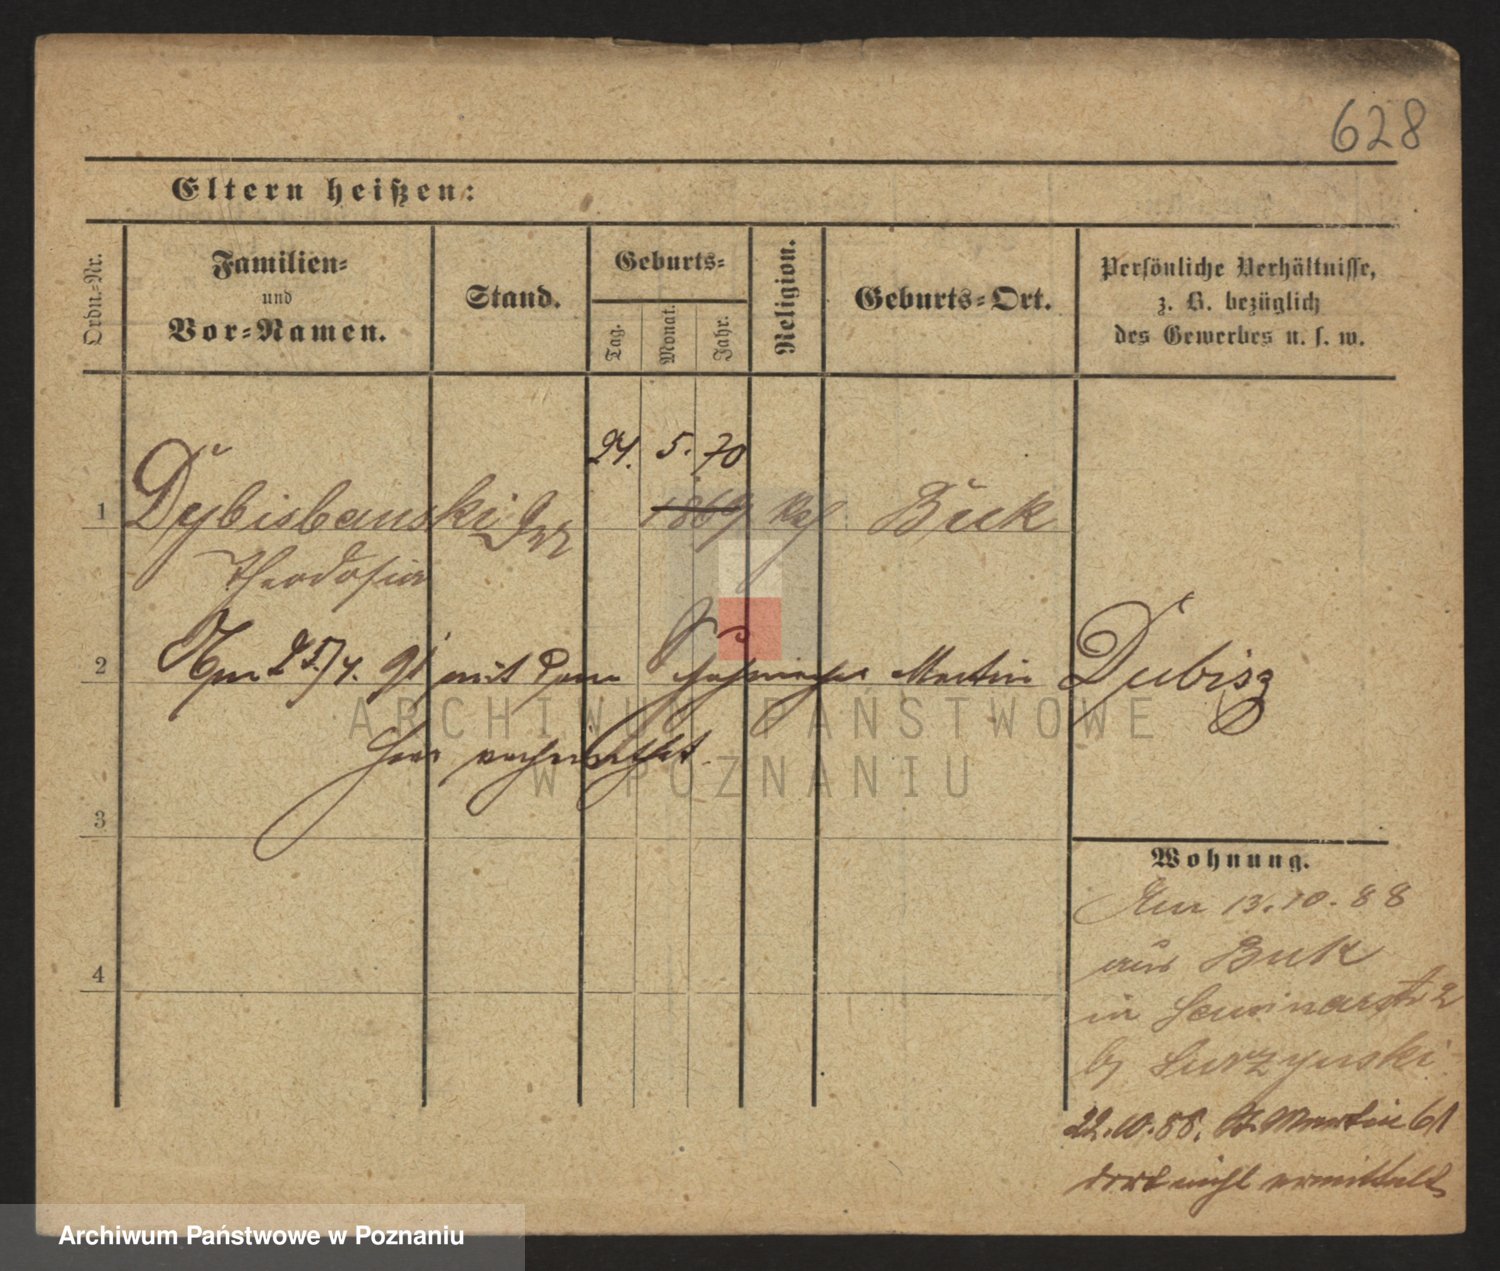 628
Eltern heißen:
Ordn.-Nr.
Familien-
und
Vor-Namen.
Stand.
Geburts-
Tag.
Monat.
Jahr.
Religion.
Geburts-Ort.
Persönliche Verhältnisse,
z. B. bezüglich
des Gewerbes u. s. w.
24. 5. 70
1 Dybisbanski 1869 Buk
Theodosia
2 Am 25/4. 91 mit dem Martin Dubisz
hier verheirathet.
3
4
Wohnung.
Am 13.10.88
aus Buk
in Seminarstr 2
b/ Surzynski
22.10.88. St. Martin 61
dort nicht ermittelt
ARCHIWUM PAŃSTWOWE
W POZNANIU
Archiwum Państwowe w Poznaniu